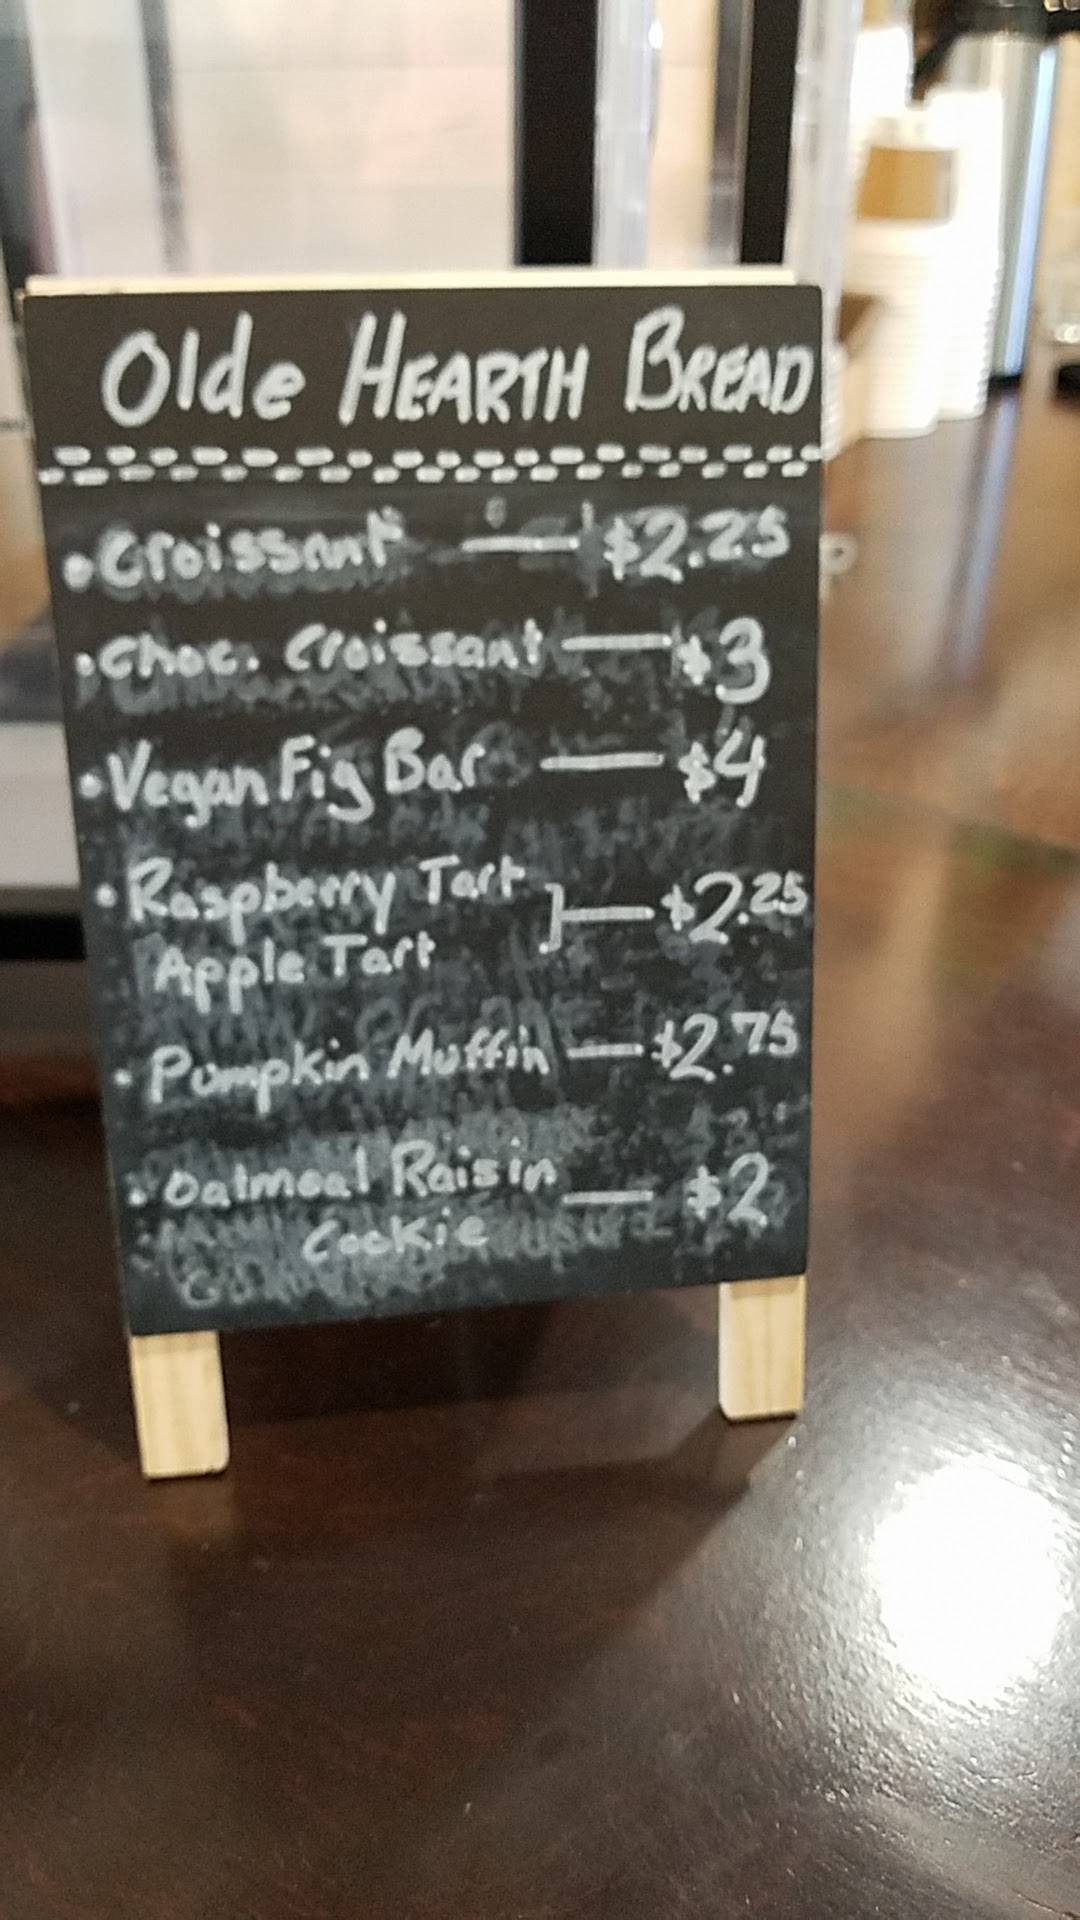 Olde HEARTH BREAD
• Croissant — $2.25
• Choc. Croissant — $3
• Vegan Fig Bar — $4
• Raspberry Tart
Apple Tart ] — $2.25
• Pumpkin Muffin — $2.75
• Oatmeal Raisin — $2
Cookie